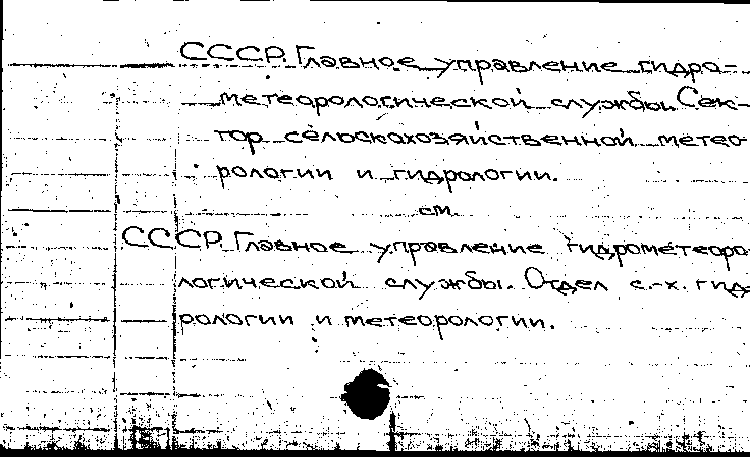 СССР. Главное управление гидро-
метеорологической службы. Сек-
тор сельскохозяйственной метео-
рологии и гидрологии.
см.
СССР. Главное управление гидрометеоро-
логической службы. Отдел с.-х. гид-
рологии и метеорологии.